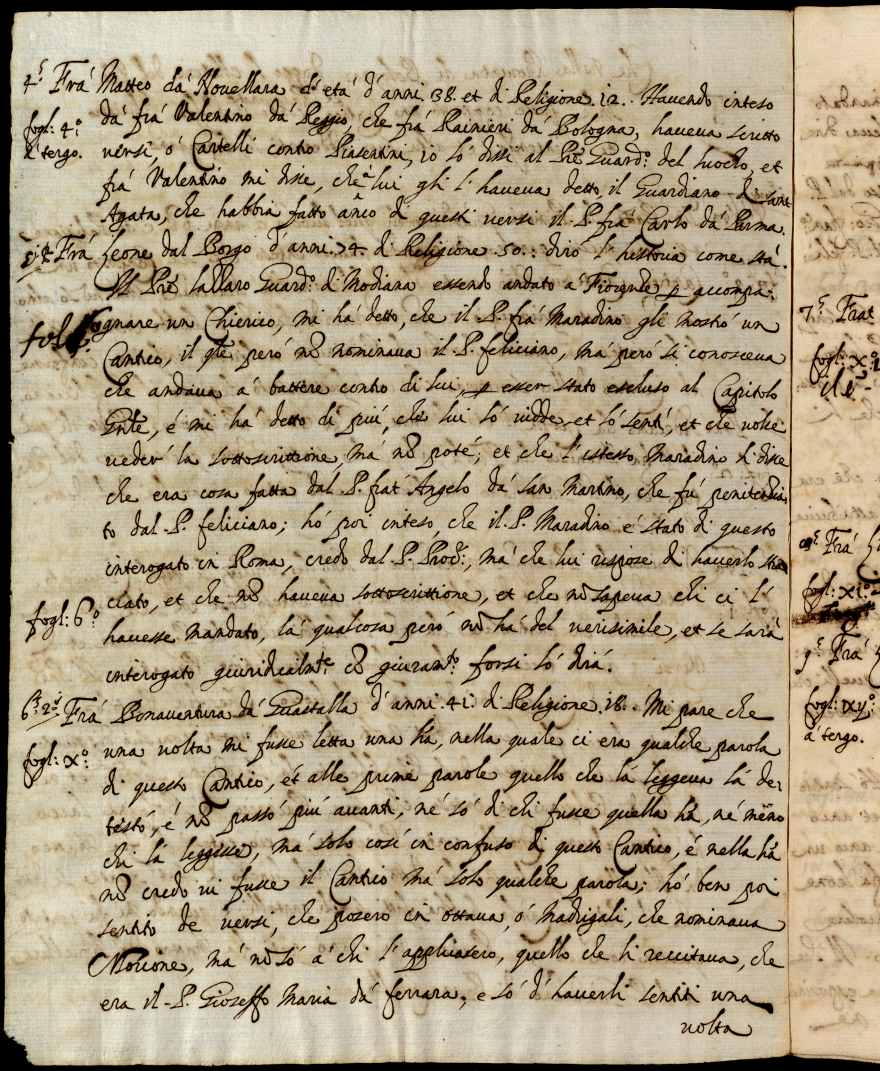 4.° Frá Matteo dá Nouellara d'etá d'anni 38. et di Religione .12. Hauendo inteso
fogl: 4.° dá frá Valentino dá Reggio, che frá Rainieri dá Bologna, haueua scritto
á tergo. uersi, ó Cartelli contro Piasentini, io ló dissi al Pre Guard.° del luocho, et
frá Valentino mi disse, che á lui gli l'haueua detto il Guardiano di sant
Agata, che habbia fatto anco di questi uersi il P. frá Carlo dá Parma.
Frá Leone dal Borgo d'anni .74. di Religione 50.: diró l'historia come stá.
Il Pre Lazzaro Guard.° di Modiana essendo andato á Fiorenze p accompa:
fol gnare un Chierico, mi há detto, che il P. frá Maradino gli mostró un
Cantico, il qle peró nō nominaua il P. feliciano, má peró si conosceua
che andaua á battere contro di lui, p esser stato escluso al Capitolo
Gnle, é mi há detto di piú, che lui ló uidde, et ló sentí, et che uolse
ueder lá sottoscrittione, má nō poté; et che l'istesso Maradino li disse
che era cosa fatta dal P. frat Angelo dá san Martino, che fú penitentia
to dal P. feliciano; hó poi inteso, che il P. Maradino é stato di questo
interogato in Roma, credo dal P. Proc:, má che lui rispose di hauerlo stra
ciato, et che nō haueua sottoscrittione, et che nō sapeua chi ci l'
fogl: 6.° hauesse mandato, lá qualcosa peró nō há del uerisimile, et se sará
interogato giuridicalmte cō giuramto forsi ló dirá.
Frá Bonauentura dá Guastalla d'anni .41. di Religione .18. Mi pare che
fogl: x.° una uolta mi fusse letta una lra, nella quale ci era qualche parola
di questo Cantico, et alle prime parole quello che lá leggeua lá de:
testó, é nō passó piú auanti, né só di chi fusse quella lra, né meno
chi lá leggesse, má solo cosí in confuso di questo Cantico, é nella lra
nō credo ui fusse il Cantico má solo qualche parola; hó ben poi
sentito de uersi, che posero in ottaua, ó Madrigali, che nominaua
Norcione, má nō só á chi l'appliassero, quello che li reccitaua, che
era il P. Gioseffo Maria dá ferrara, e só d'hauerli sentiti una
uolta
7.° Frat
fogl: x.°
Frá
fogl: xi.°
9.° Frá
fogl: xy.°
á tergo.